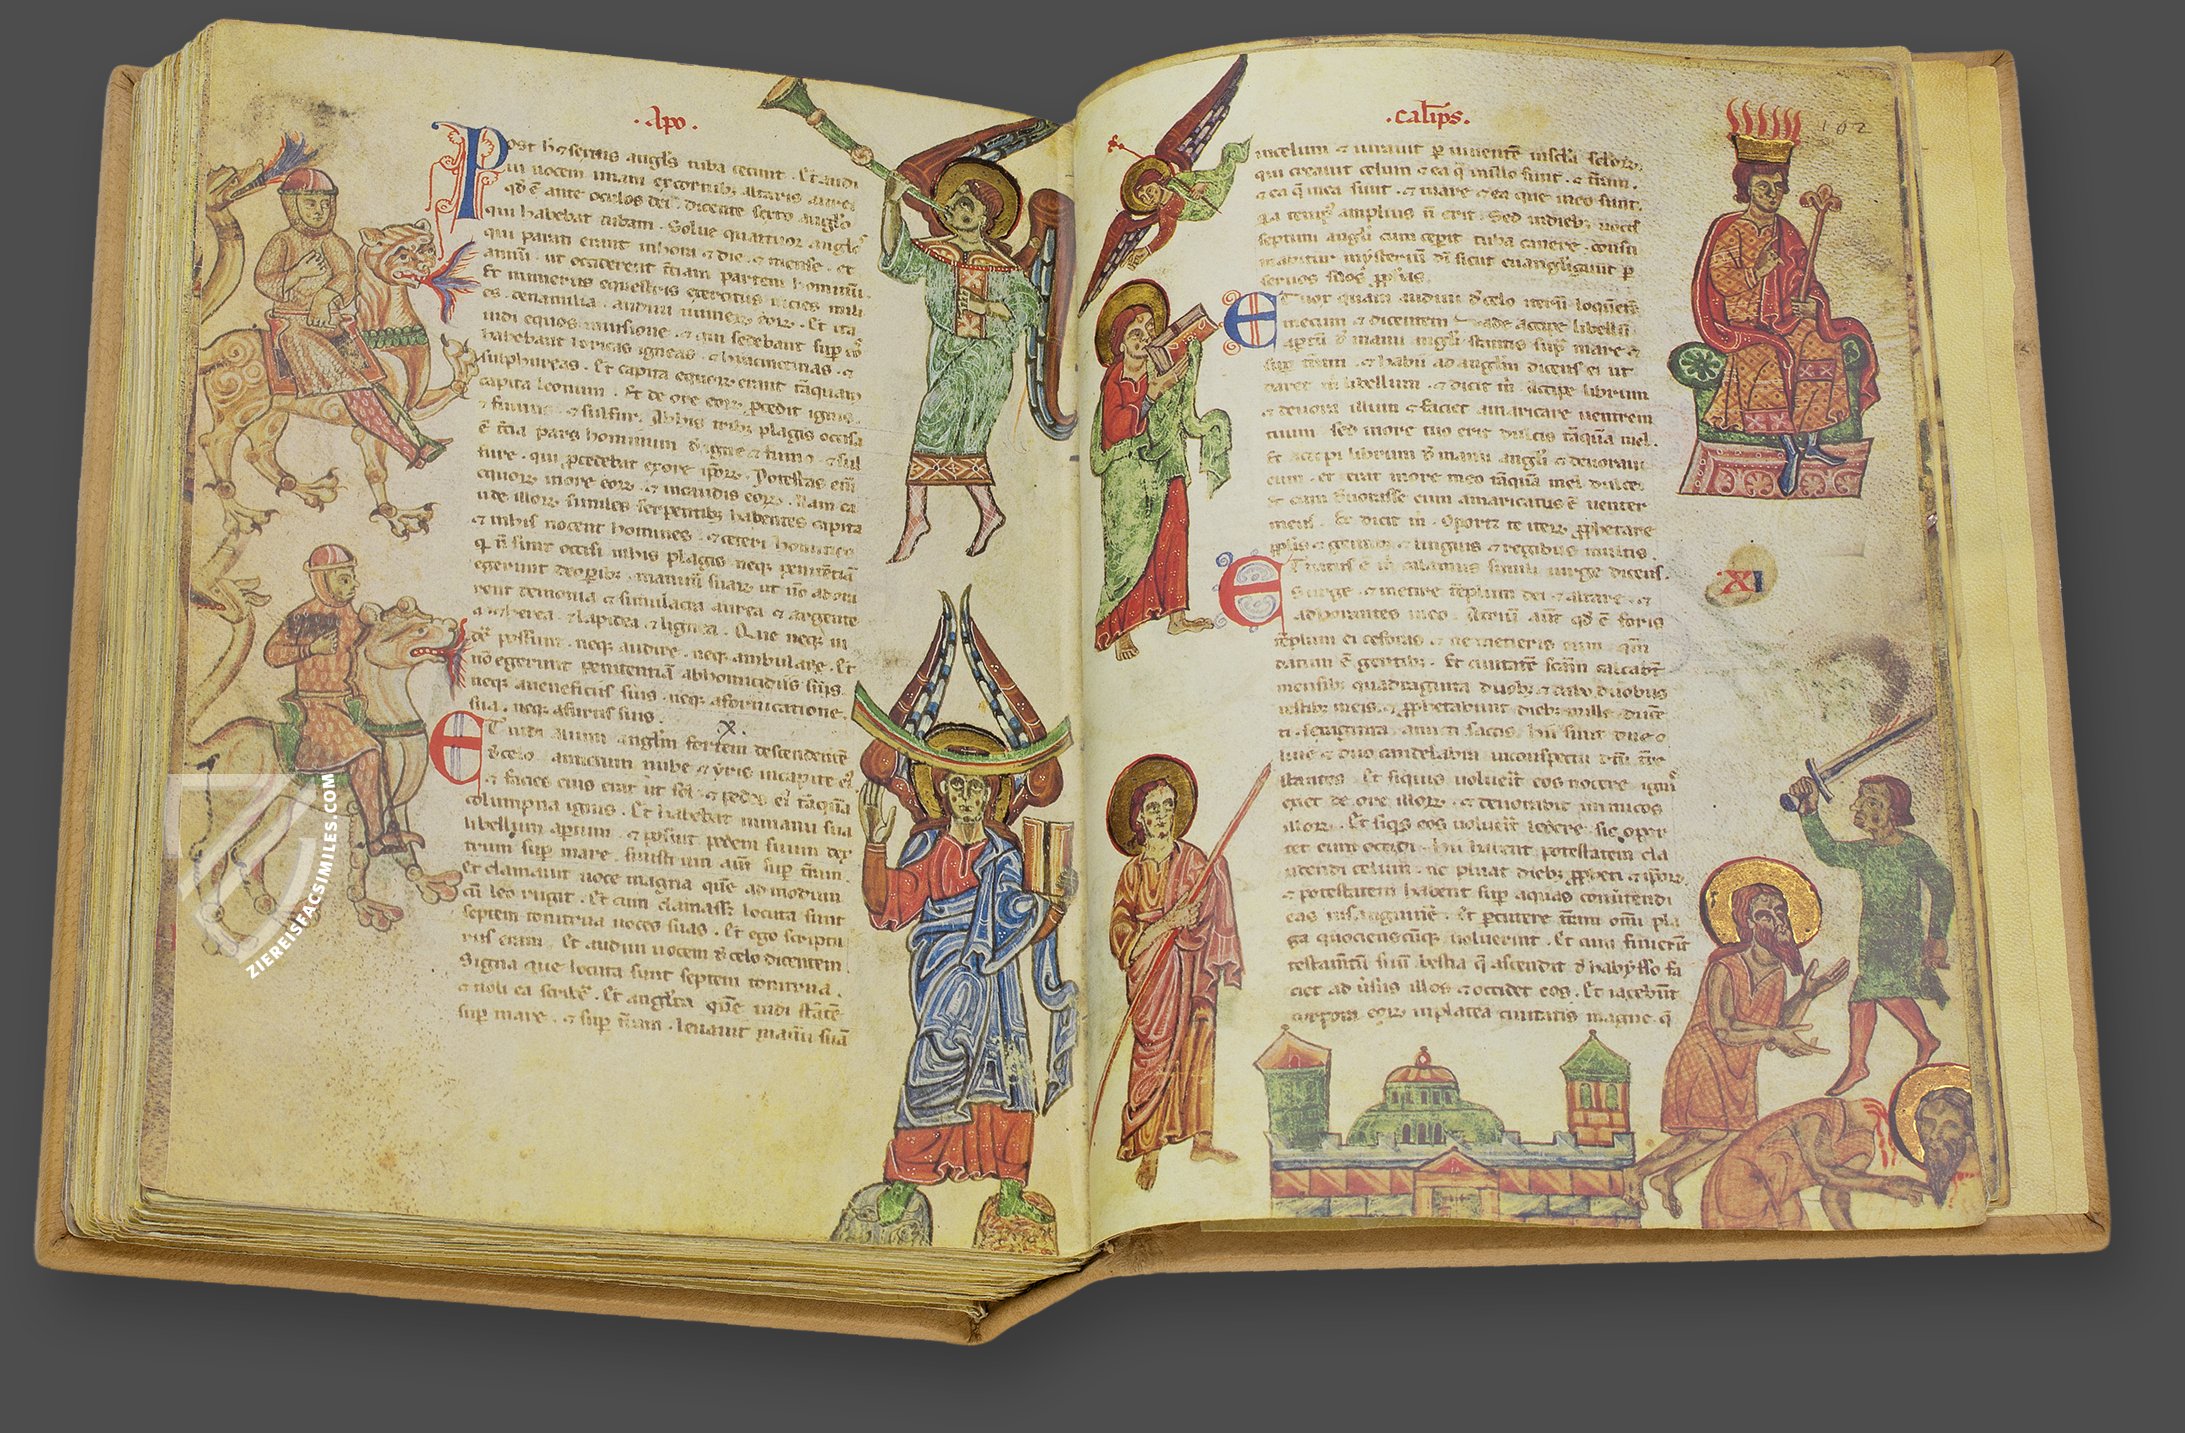 · Apo ·
Post h̄ · sextus angl's tuba cecinit · Et audi
ui uocem unam ex cornib; altaris aurei
qd̄ ē ante oculos dei · dicentē sexto anglo
qui habebat tubam · Solue quattuor anglos
qui parati erant in hora · die · mense · et
annū · ut occiderent tciam partem hominū ·
Et numerus equestris exercitus uicies mili
es · dena milia · audiui numerū eorꝝ · Et ita
uidi equos in uisione · qui sedebant sup eos
habebant loricas igneas · hiacinctinas ·
sulphureas · Et capita equorꝝ erant tāquam
capita leonum · Et de ore eorꝝ pcedit ignis
fumus · sulfur · Ab his trib; plagis occisa
ē tcia pars hominum de igne fumo sul
fure · qui pcedebat ex ore ipsorꝝ · Potestas eni
equorꝝ in ore eorꝝ · in caudis eorꝝ · Nam ca
ude illorꝝ similes serpentib; habentes capita
in his nocent homines · ceteri homines
q n̄ sunt occisi in his plagis neq; penitentiā
egerunt de opib; manuū suarꝝ ut nō ado
rent demonia simulacra aurea argentea
erea lapidea lignea · Que neq; ui
possunt · neq; audire · neq; ambulare · Et
nō egerunt penitentiā ab homicidiis suis
neq; a ueneficiis suis · neq; a fornicatione
sua · neq; a furtis suis ·
X ·
Et uidi alium anglm fortem descendentē
de celo · amictum nube · yris in capite ei
facies eius erat ut sol · pedes ei tāquā
columpna ignis · Et habebat in manu sua
libellum apertum · posuit pedem suum dex
trum sup mare · sinistrum aut sup trram ·
Et clamauit uoce magna quē ad modum
cū leo rugit · Et cum clamasset locuta sunt
septem tonitrua uoces suas · Et ego scriptu
rus eram · Et audiui uocem de celo dicentem ·
Signa que locuta sunt septem tonitrua ·
noli ea scribere · Et angls quē uidi stantē
sup mare · sup tram · leuauit manū suā
· calips ·
102
in celum iurauit p uiuentē in scla sclorꝝ
qui creauit celum ea q in illo sunt · tram ·
ea q in ea sunt · mare ea que in eo sunt ·
Quia tempus amplius n̄ erit · Sed in dieb; uocis
septimi angli cum ceperit tuba canere · consu
mabitur mysterium di sicut euanglizauit p
seruos suos pphas ·
Et uox quam audiui de celo iterū loquentē
mecum dicentem · Vade accipe libellū
aptū de manu angli stantis sup mare
sup tram · abii ad anglm dicens ei ut
daret m libellum · dicit m · Accipe librum
deuora illum faciet amaricare uentrem
tuum · sed in ore tuo erit dulcis tāquā mel ·
Et accepi librum de manu angli deuoraui
eum · et erat in ore meo tāquā mel dulce
cum deuorasse eum amaricatus ē uenter
meus · Et dicit m · Oportet te iterꝝ pphetare
pplis gentib; linguis regibus multis ·
Et datus ē m calamus similis uirge dicens ·
· XI
Surge · metire templum dei altare ·
adorantes in eo · Atrium aut qd ē foris
templum ei ce foras · ne metieris eum · qm
datum ē gentib; · Et ciuitatē scam calcabūt
mensib; quadraginta duob; · dabo duobus
testib; meis · pphetabunt dieb; mille ducē
ti · sexaginta · amicti saccis · Hii sunt due o
liue duo candelabra in conspectu dni tre
stantes · Et siquis uoluerit eos nocere ignis
exiet de ore illorꝝ · deuorabit inimicos
illorꝝ · Et siqs eos uoluerit ledere · sic opor
tet eum occidi · Hii habent potestatem clau
dendi celum · ne pluat dieb; pphetie ipsorꝝ
potestatem habent sup aquas conuertendi
eas in sanguinē · pcutere tram omi pla
ga quociens cūq; uoluerint · Et cum finierūt
testamtū suū bestia q ascendit de habysso fa
ciet ad usus illos occidet eos · Et iacebūt
corpora eorꝝ in platea ciuitatis magne · q
ZIEREISFACSIMILES.COM